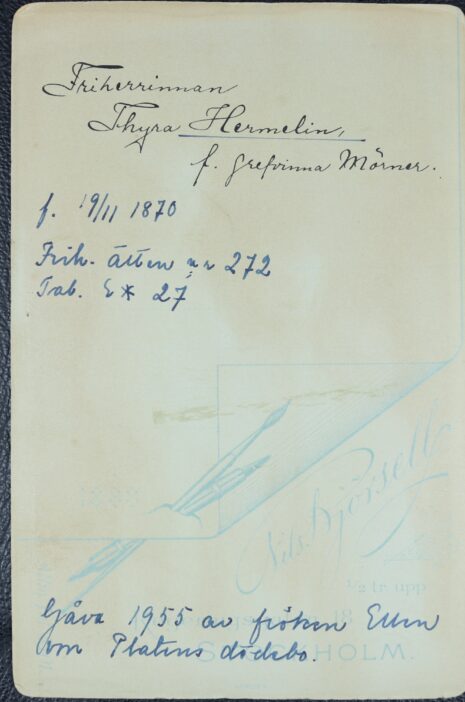 Friherrinnan
Thyra Hermelin,
f. grefvinna Mörner.
f. 19/11 1870
Frih. ätten nr 272
Tab. E* 27
Nils Björsell
1/2 tr. upp
STOCKHOLM.
Gåva 1955 av fröken Ellen
von Platens dödsbo.